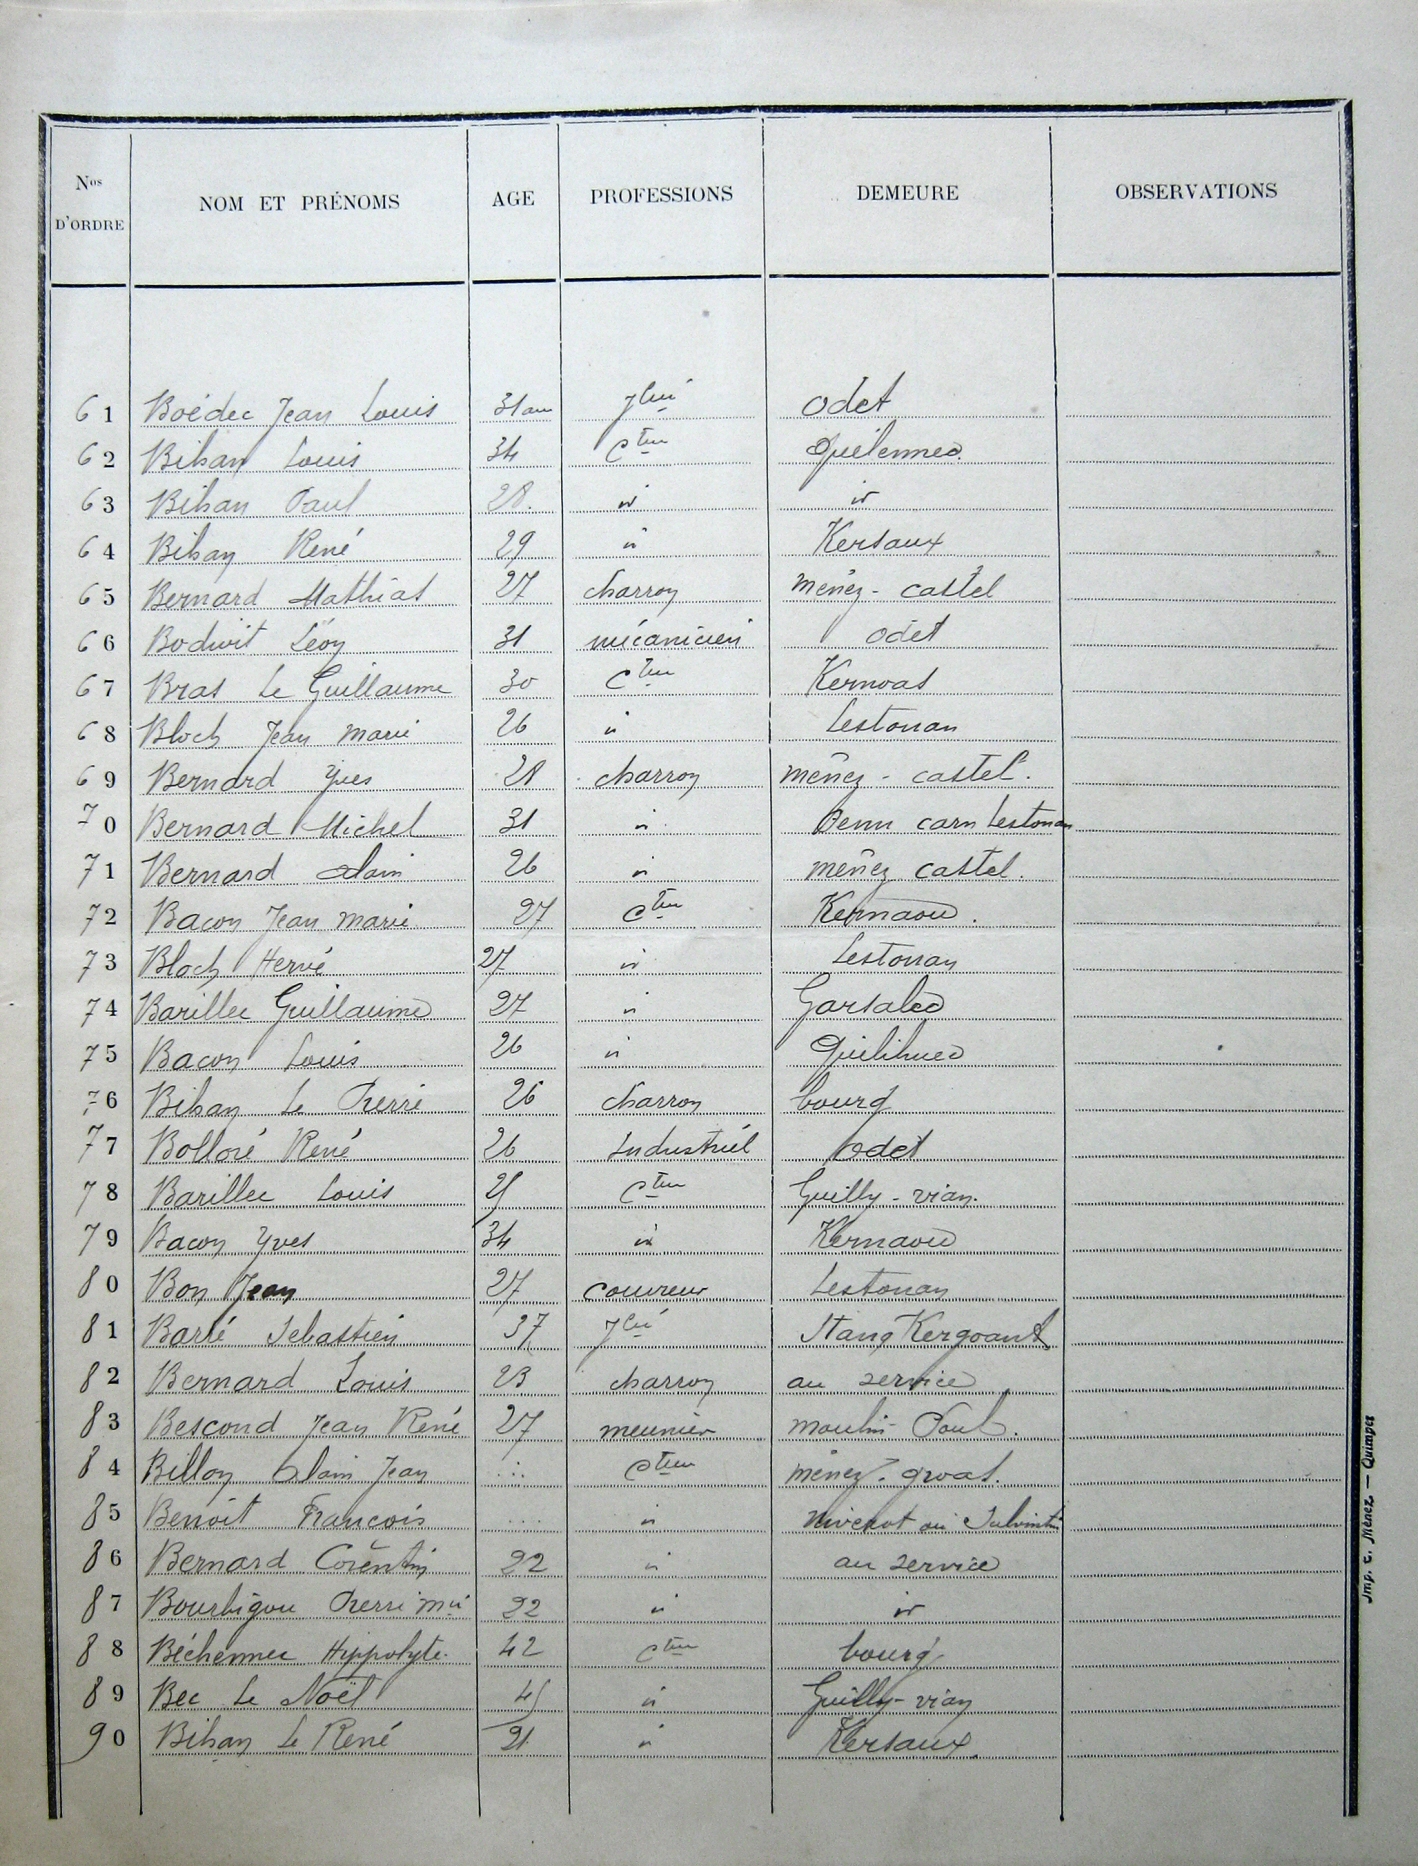 Nos D'ORDRE NOM ET PRÉNOMS AGE PROFESSIONS DEMEURE OBSERVATIONS
61 Boédec Jean Louis 31 ans jlier Odet
62 Bihan Louis 34 cteur Quilennec
63 Bihan Paul 28 id id
64 Bihan René 29 id Kersaux
65 Bernard Mathias 27 charron menez - castel
66 Bodivit Léon 31 mécanicien odet
67 Bras Le Guillaume 30 cteur Kernoas
68 Bloch Jean marie 26 id Lestonan
69 Bernard Yves 28 charron menez - castel.
70 Bernard Michel 31 id Benn carn Lestonan
71 Bernard alain 26 id menez castel.
72 Bacon Jean marie 27 cteur Kernaou.
73 Bloch Hervé 27 id Lestonan
74 Barillec Guillaume 27 id Garsalec
75 Bacon Louis 26 id Quilihuec
76 Bihan Le Pierre 26 charron bourg
77 Bolloré René 26 Industriel odet
78 Barillec Louis 25 cteur Guilly - vian.
79 Bacon Yves 34 id Kernaou
80 Bon Jean 27 couvreur Lestonan
81 Barré Sebastien 37 jlier Stang Kergoant
82 Bernard Louis 23 charron au service
83 Bescond Jean René 27 meunier moulin Paul.
84 Billon Alain Jean ... cteur menez - groas.
85 Benoit François .... id Niverrot
86 Bernard Corentin 22 id au service
87 Bourbigou Pierre Mie 22 id id
88 Béchennec Hippolyte 42 cteur bourg
89 Bec Le Noël 45 id Guilly - vian
90 Bihan Le René 21 id Kersaux.
Imp. C. Ménez — Quimper